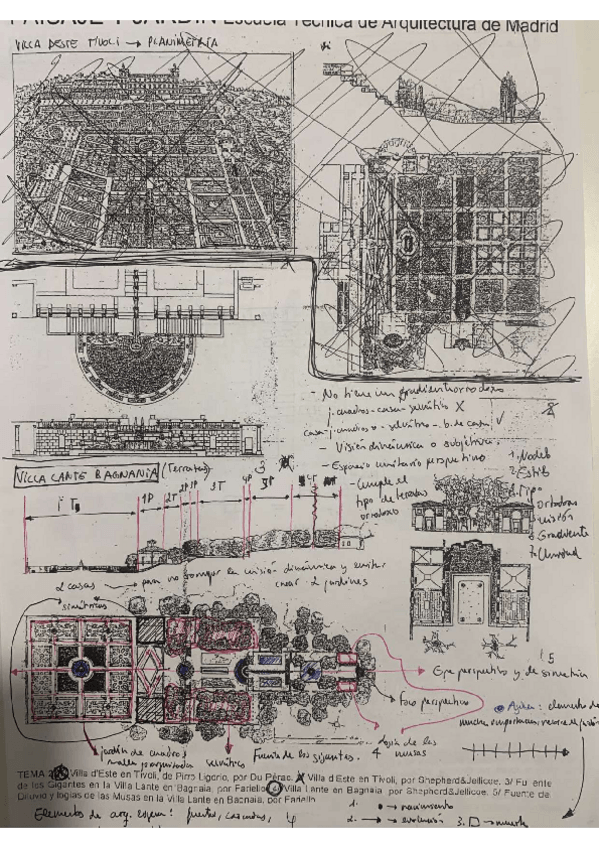 PAISAJE Y JARDÍN Escuela Técnica de Arquitectura de Madrid
VILLA DESTE TIVOLI → PLANIMETRIA
- No tiene un gradiente ortodoxo
j. cuadros - casa - selvático X
casa - j. cuadros - selvático - b. de casa ✓
- Visión dinámica o subjetiva.
- Espacio unitario perspectivo
- Cumple el
tipo de terrazas
ortodoxo
1. Modelo
2. Estilo
3. Tipo
Ortodoxo
visión
6 Gradiente
7. Unidad
VILLA LANTE BAGNANIA (Terrazas)
3
1P
2T
3T
4P
2 casas → para no romper la visión dinámica y evitar
crear 2 jardines
simétricas
5
Eje perspectivo y de simetría
foco perspectivo
Agua: elemento de
mucha importancia recorre el jardín
jardín de cuadros
Fuente de los gigantes.
4
logia de las
musas
TEMA 2 Villa d'Este en Tívoli, de Pirro Ligorio, por Du Pérac. Villa d'Este en Tívoli, por Shepherd&Jellicoe. 3/ Fuente
de los Gigantes en la Villa Lante en Bagnaia, por Fariello. 4/ Villa Lante en Bagnaia por Shepherd&Jellicoe. 5/ Fuente de
Diluvio y logias de las Musas en la Villa Lante en Bagnaia, por Fariello
1. • → nacimiento
Elementos de arq. efímera: puentes, cascadas,
2. → evolución 3. → muerte